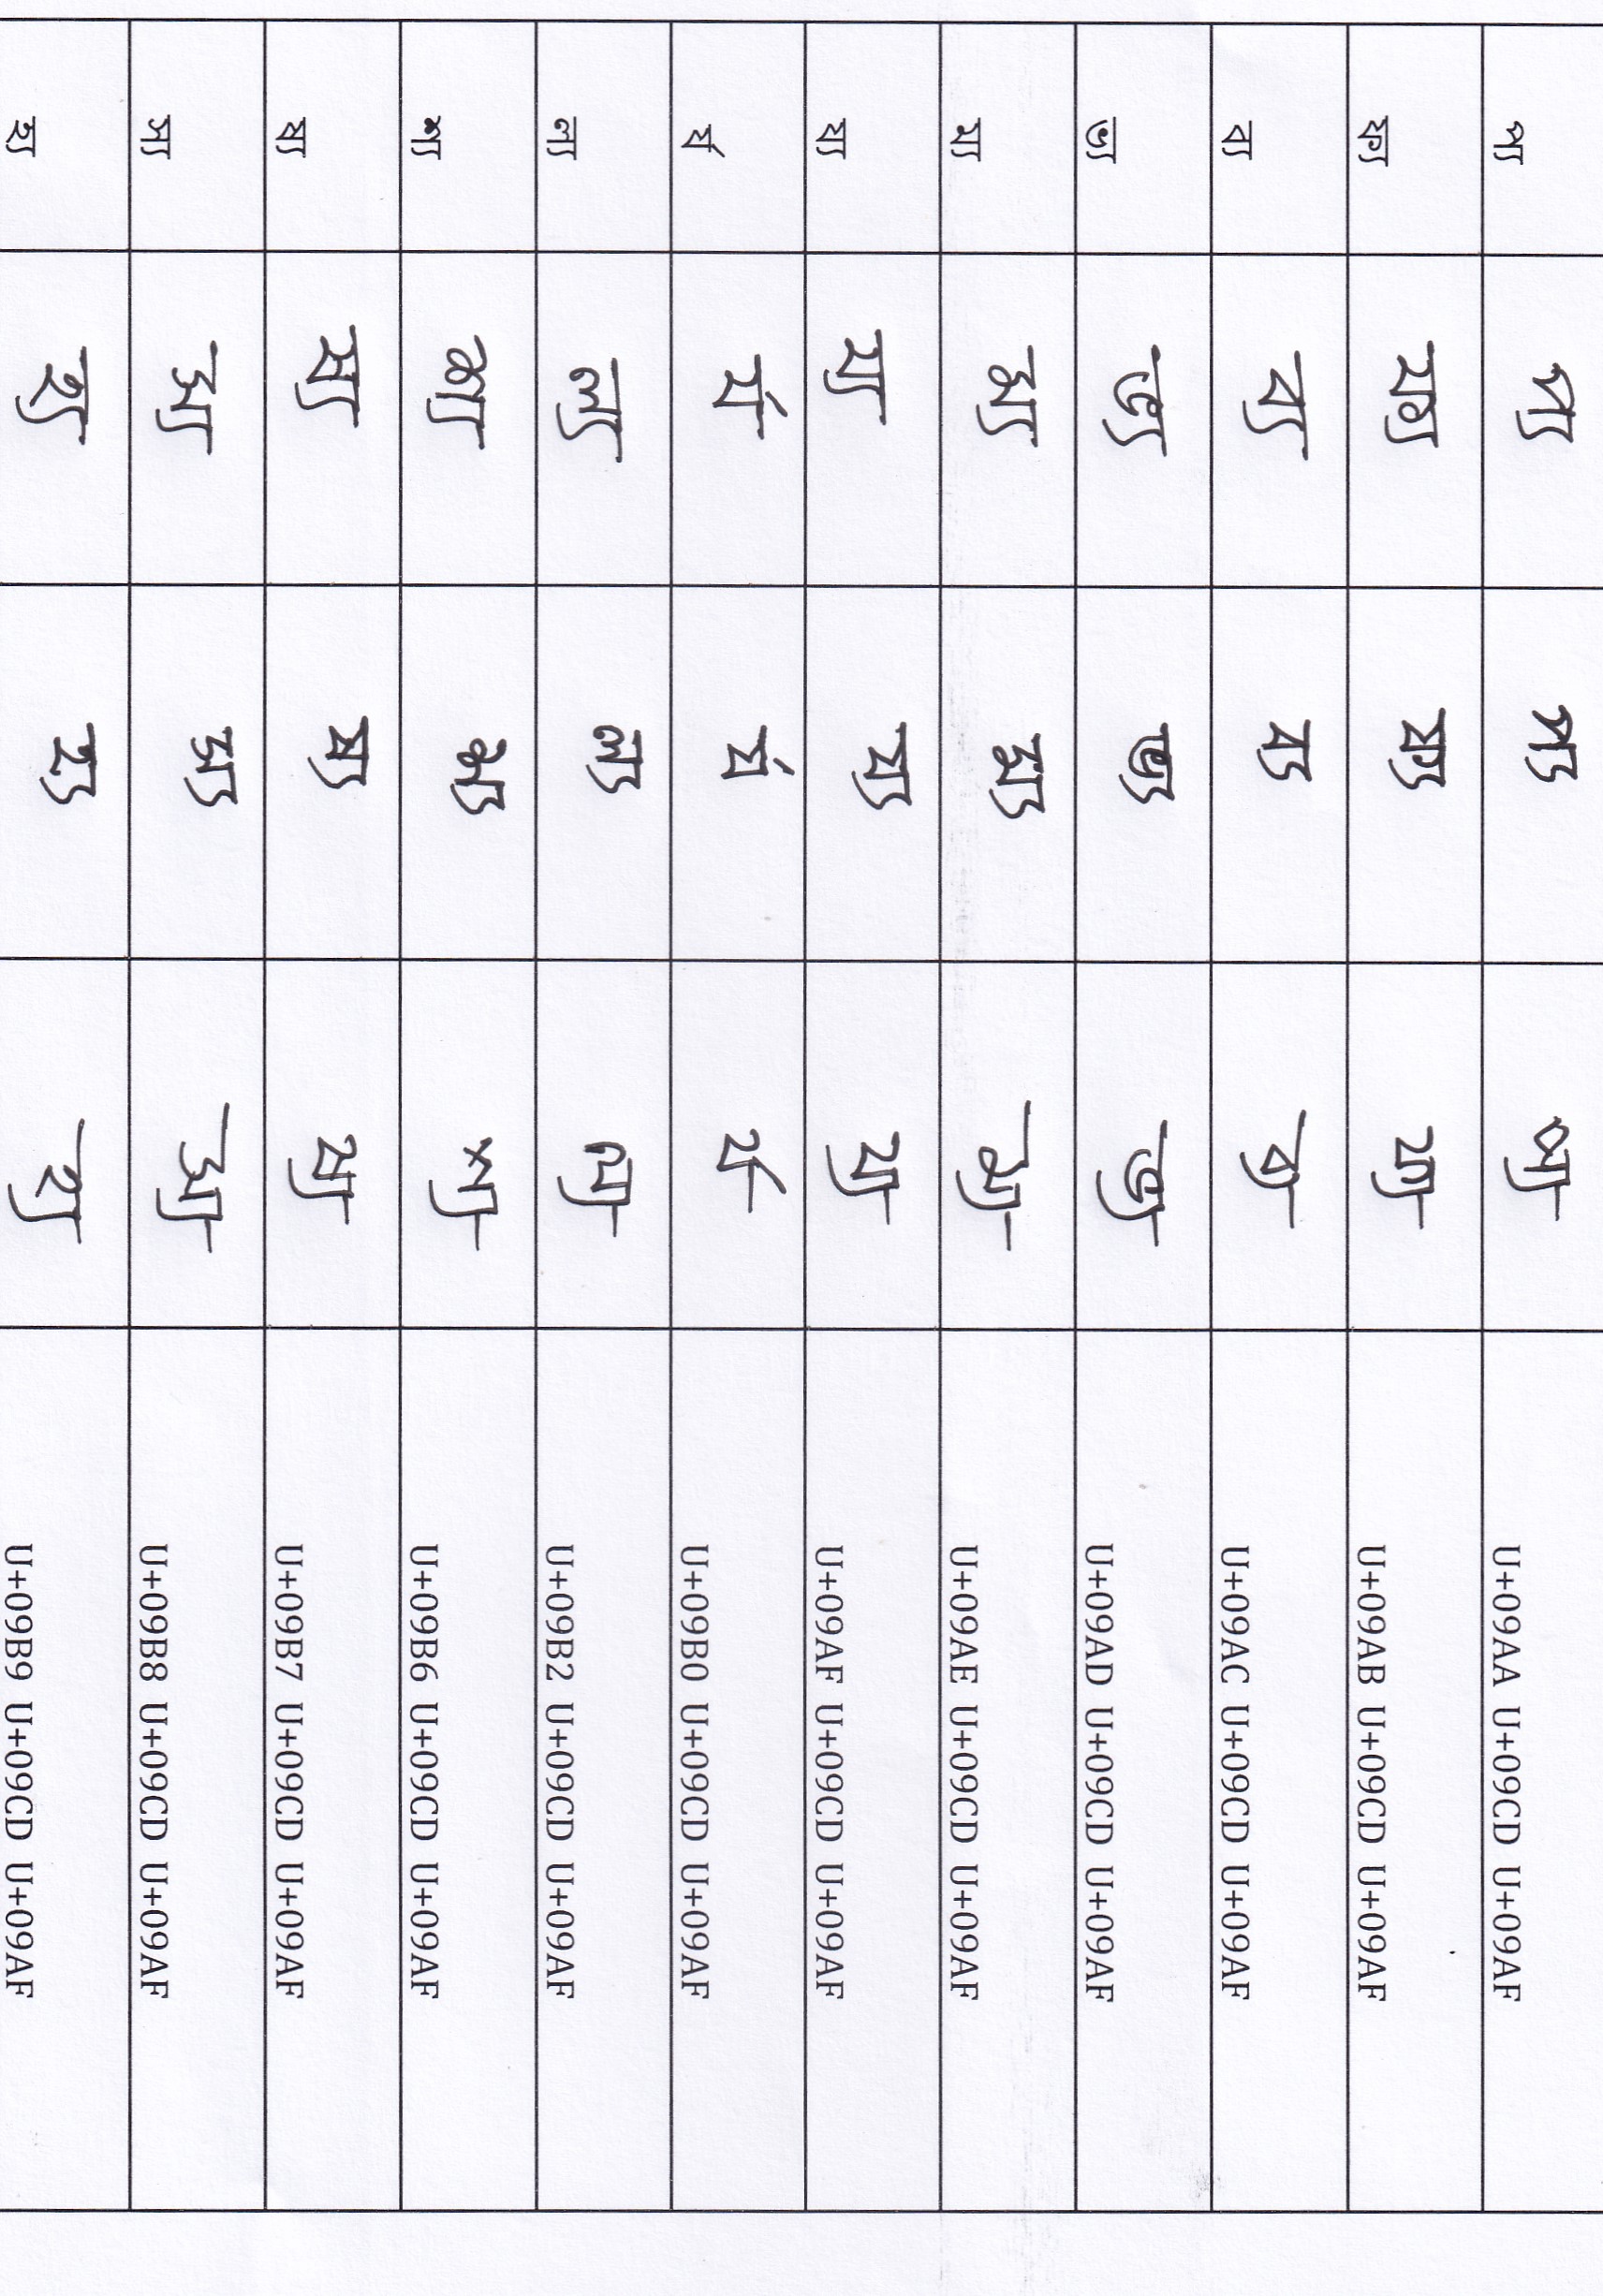 প্য প্য প্য প্য U+09AA U+09CD U+09AF
ফ্য ফ্য ফ্য ফ্য U+09AB U+09CD U+09AF
ব্য ব্য ব্য ব্য U+09AC U+09CD U+09AF
ভ্য ভ্য ভ্য ভ্য U+09AD U+09CD U+09AF
ম্য ম্য ম্য ম্য U+09AE U+09CD U+09AF
য্য য্য য্য য্য U+09AF U+09CD U+09AF
র্য র্য র্য র্য U+09B0 U+09CD U+09AF
ল্য ল্য ল্য ল্য U+09B2 U+09CD U+09AF
শ্য শ্য শ্য শ্য U+09B6 U+09CD U+09AF
ষ্য ষ্য ষ্য ষ্য U+09B7 U+09CD U+09AF
স্য স্য স্য স্য U+09B8 U+09CD U+09AF
হ্য হ্য হ্য হ্য U+09B9 U+09CD U+09AF